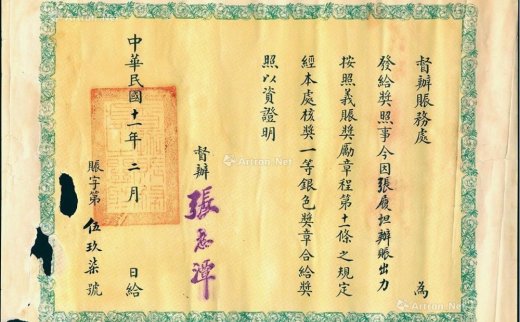 督辦賬務處 為
發給獎照事今因張廈坦辦賑出力
按照義賑獎勵章程第十一條之規定
經本處核獎一等銀色獎章合給獎
照以資證明
督辦 張志潭
中華民國十一年二月 日給
賑字第伍玖柒號
Artron.Net